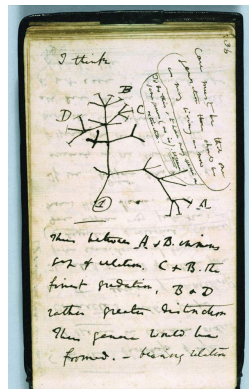 I think
Case must be that one
generation then should be
as many living as now
To do this & to have many species in
same genus (as is) requires
extinction
B
C
D
A
1
Thus between A & B. immens
gap of relation. C & B. the
finest gradation, B & D
rather greater distinction
Thus genera would be
formed. — bearing relation
36